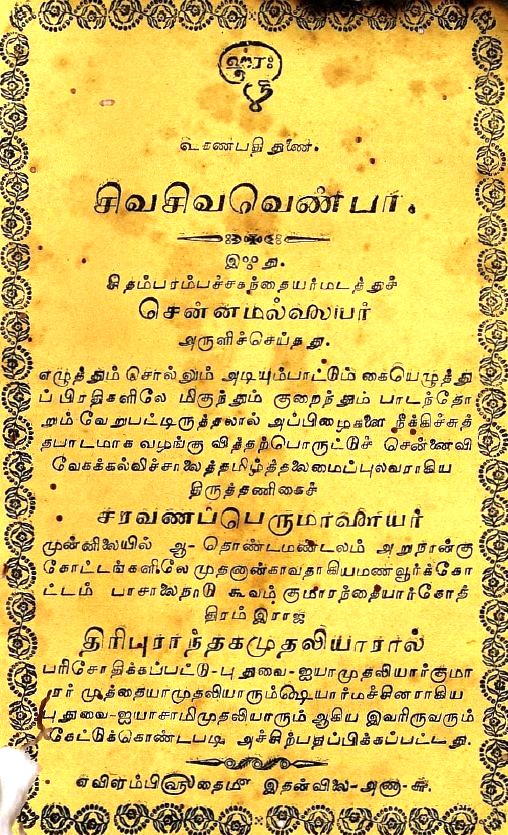 கணபதி துணை.
சிவசிவவெண்பா.
இஃது.
சிதம்பரம்பச்சகந்தையர்மடத்துச்
சென்னமல்லையர்
அருளிச்செய்தது.
எழுத்தும் சொல்லும் அடியும்பாட்டும் கையெழுத்து
ப் பிரதிகளிலே மிகுந்தும் குறைந்தும் பாடந்தோ
றும் வேறுபட்டிருத்தலால் அப்பிழைகளை நீக்கிச்சுத்
தபாடமாக வழங்கு வித்தற்பொருட்டுச் சென்னைவி
வேகக்கல்விச்சாலைத்தமிழ்த்தலைமைப்புலவராகிய
திருத்தணிகைச்
சரவணப்பெருமாளையர்
முன்னிலையில் ஆ- தொண்டமண்டலம் அறுநான்கு
கோட்டங்களிலே முதனான்காவதாகியமணவூர்க்கோ
ட்டம் பாசாலைநாடு கூவம் குமாரந்தையார்கோத்
திரம் இராஜ
திரிபுராந்தகமுதலியாரால்
பரிசோதிக்கப்பட்டு-புதுவை-ஐயாமுதலியார்குமா
ரர் முத்தையாமுதலியாரும்ஷையார்மச்சினராகிய
புதுவை-ஐயாசாமிமுதலியாரும் ஆகிய இவரிருவரும்
கேட்டுக்கொண்டபடி அச்சிற்பதப்பிக்கப்பட்டது.
இதன்விலை